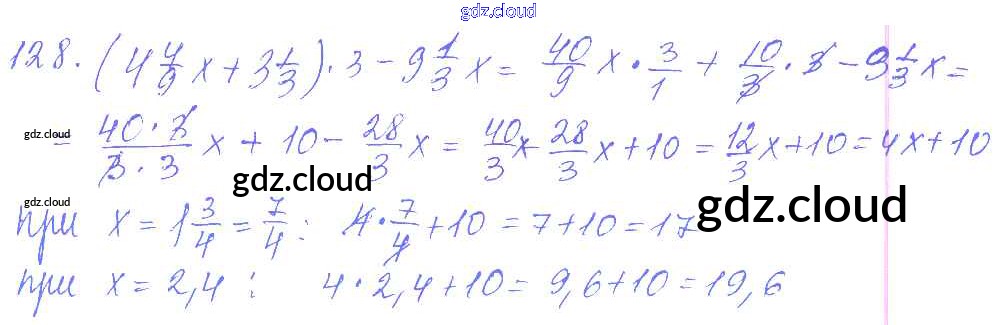 gdz.cloud
128. (4 4/9 x + 3 1/3) · 3 − 9 1/3 x = 40/9 x · 3/1 + 10/3 · 3 − 9 1/3 x =
gdz.cloud
= 40 · 3 / 3 · 3 x + 10 − 28/3 x = 40/3 x − 28/3 x + 10 = 12/3 x + 10 = 4x + 10
gdz.cloud
gdz.cloud
gdz.cloud
при x = 1 3/4 = 7/4 : 4 · 7/4 + 10 = 7 + 10 = 17
при x = 2,4 : 4 · 2,4 + 10 = 9,6 + 10 = 19,6